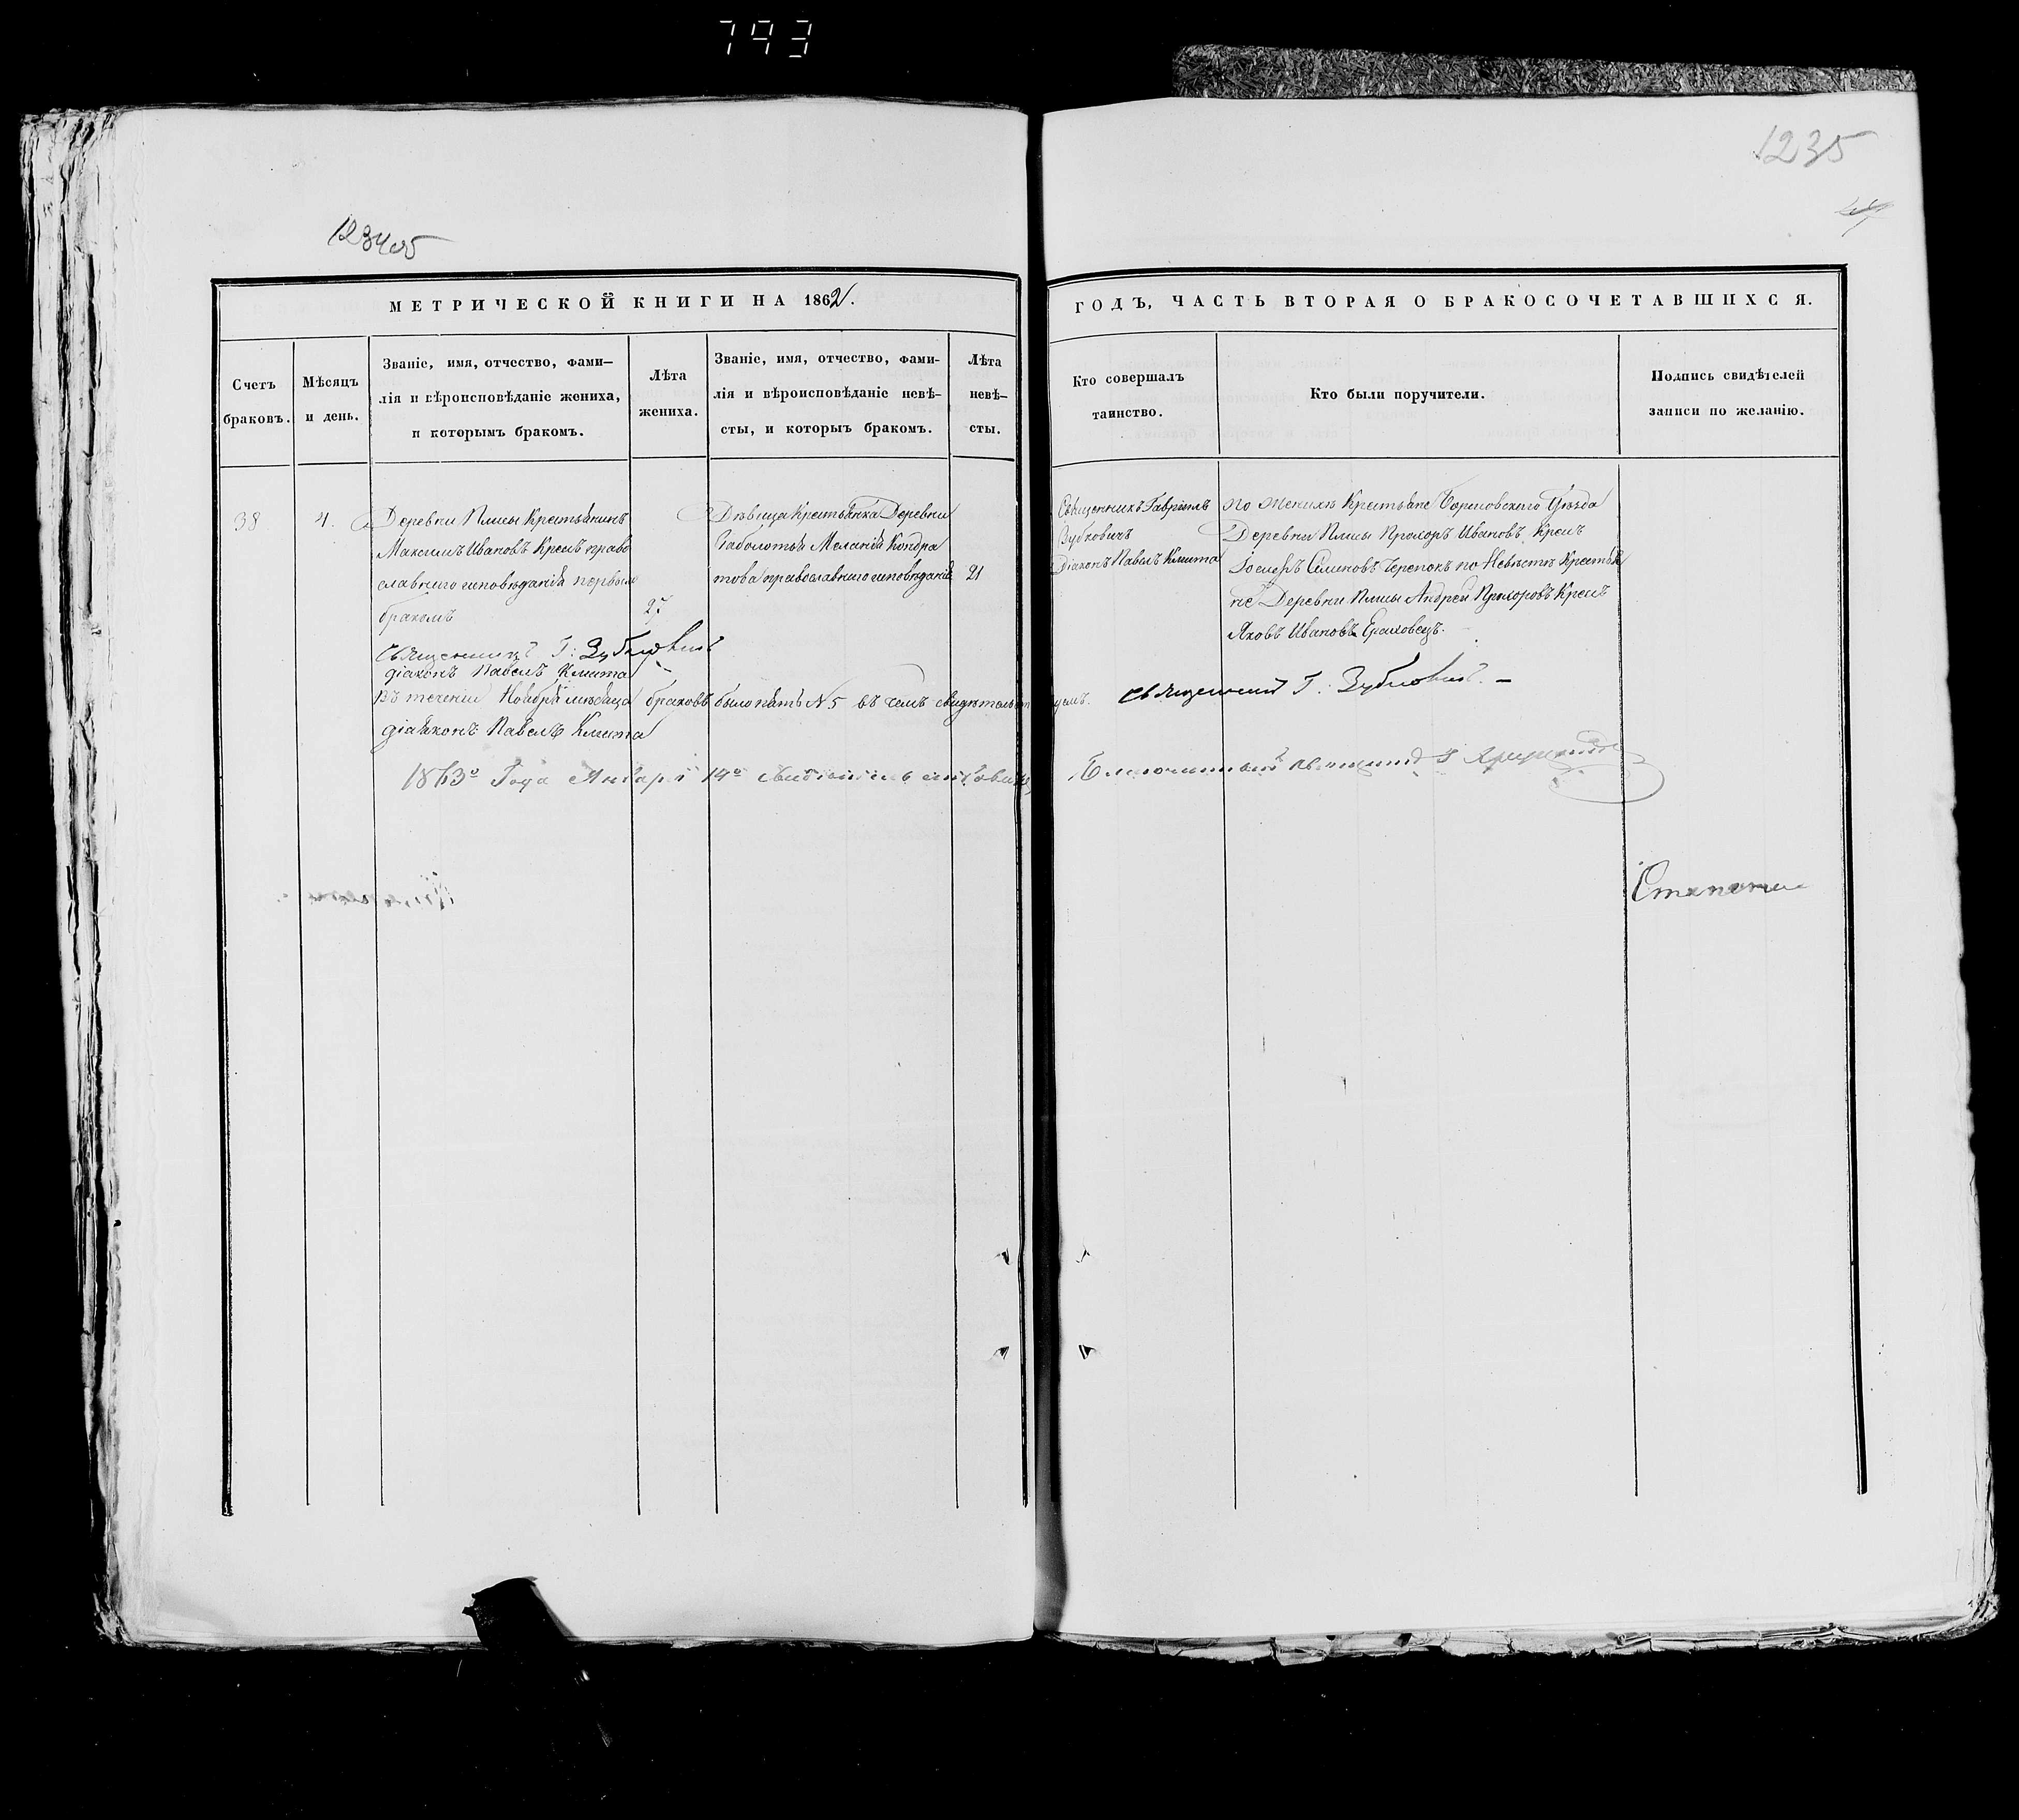 793
1235
МЕТРИЧЕСКОЙ КНИГИ НА 1862.
ГОДЪ, ЧАСТЬ ВТОРАЯ О БРАКОСОЧЕТАВШИХСЯ.
Счетъ
браковъ.
Мѣсяцъ
и день.
Званіе, имя, отчество, фами–
лія и вѣроисповѣданіе жениха,
и которымъ бракомъ.
Лѣта
жениха.
Званіе, имя, отчество, фами-
лія и вѣроисповѣданіе невѣ-
сты, и которыъ бракомъ.
Лѣта
невѣ–
сты.
Кто совершалъ
таинство.
Кто были поручители.
Подпись свидѣтелей
записи по желанію.
38
4.
Деревни Плисы Крестьянинъ
Максимъ Ивановъ Кренъ право
славнаго исповѣданія первым
бракомъ
27
Дѣвица Крестьянка Деревни
Заболотья Меланія Кондра
това православнаго исповѣданія
21
Священникъ Гавріилъ
Зубковичъ
Діаконъ Павелъ Клишта
По Женихѣ Крестьяне Борисовскаго Уѣзда
Деревни Плисы Прохоръ Ивановъ Кренъ
Іосифъ Семіновъ Черепокъ по Невѣстѣ Крестья
не Деревни Плисы Андрей Прохоровъ Кренъ
Яковъ Ивановъ
Священникъ Г: Зубковичъ
діаконъ Павелъ Клишта
Въ теченіи Ноября мѣсяца браковъ было пять № 5 въ чемъ свидѣтельствуемъ. Священникъ Г: Зубковичъ. –
діаконъ Павелъ Клишта
1863го Года Января 14го